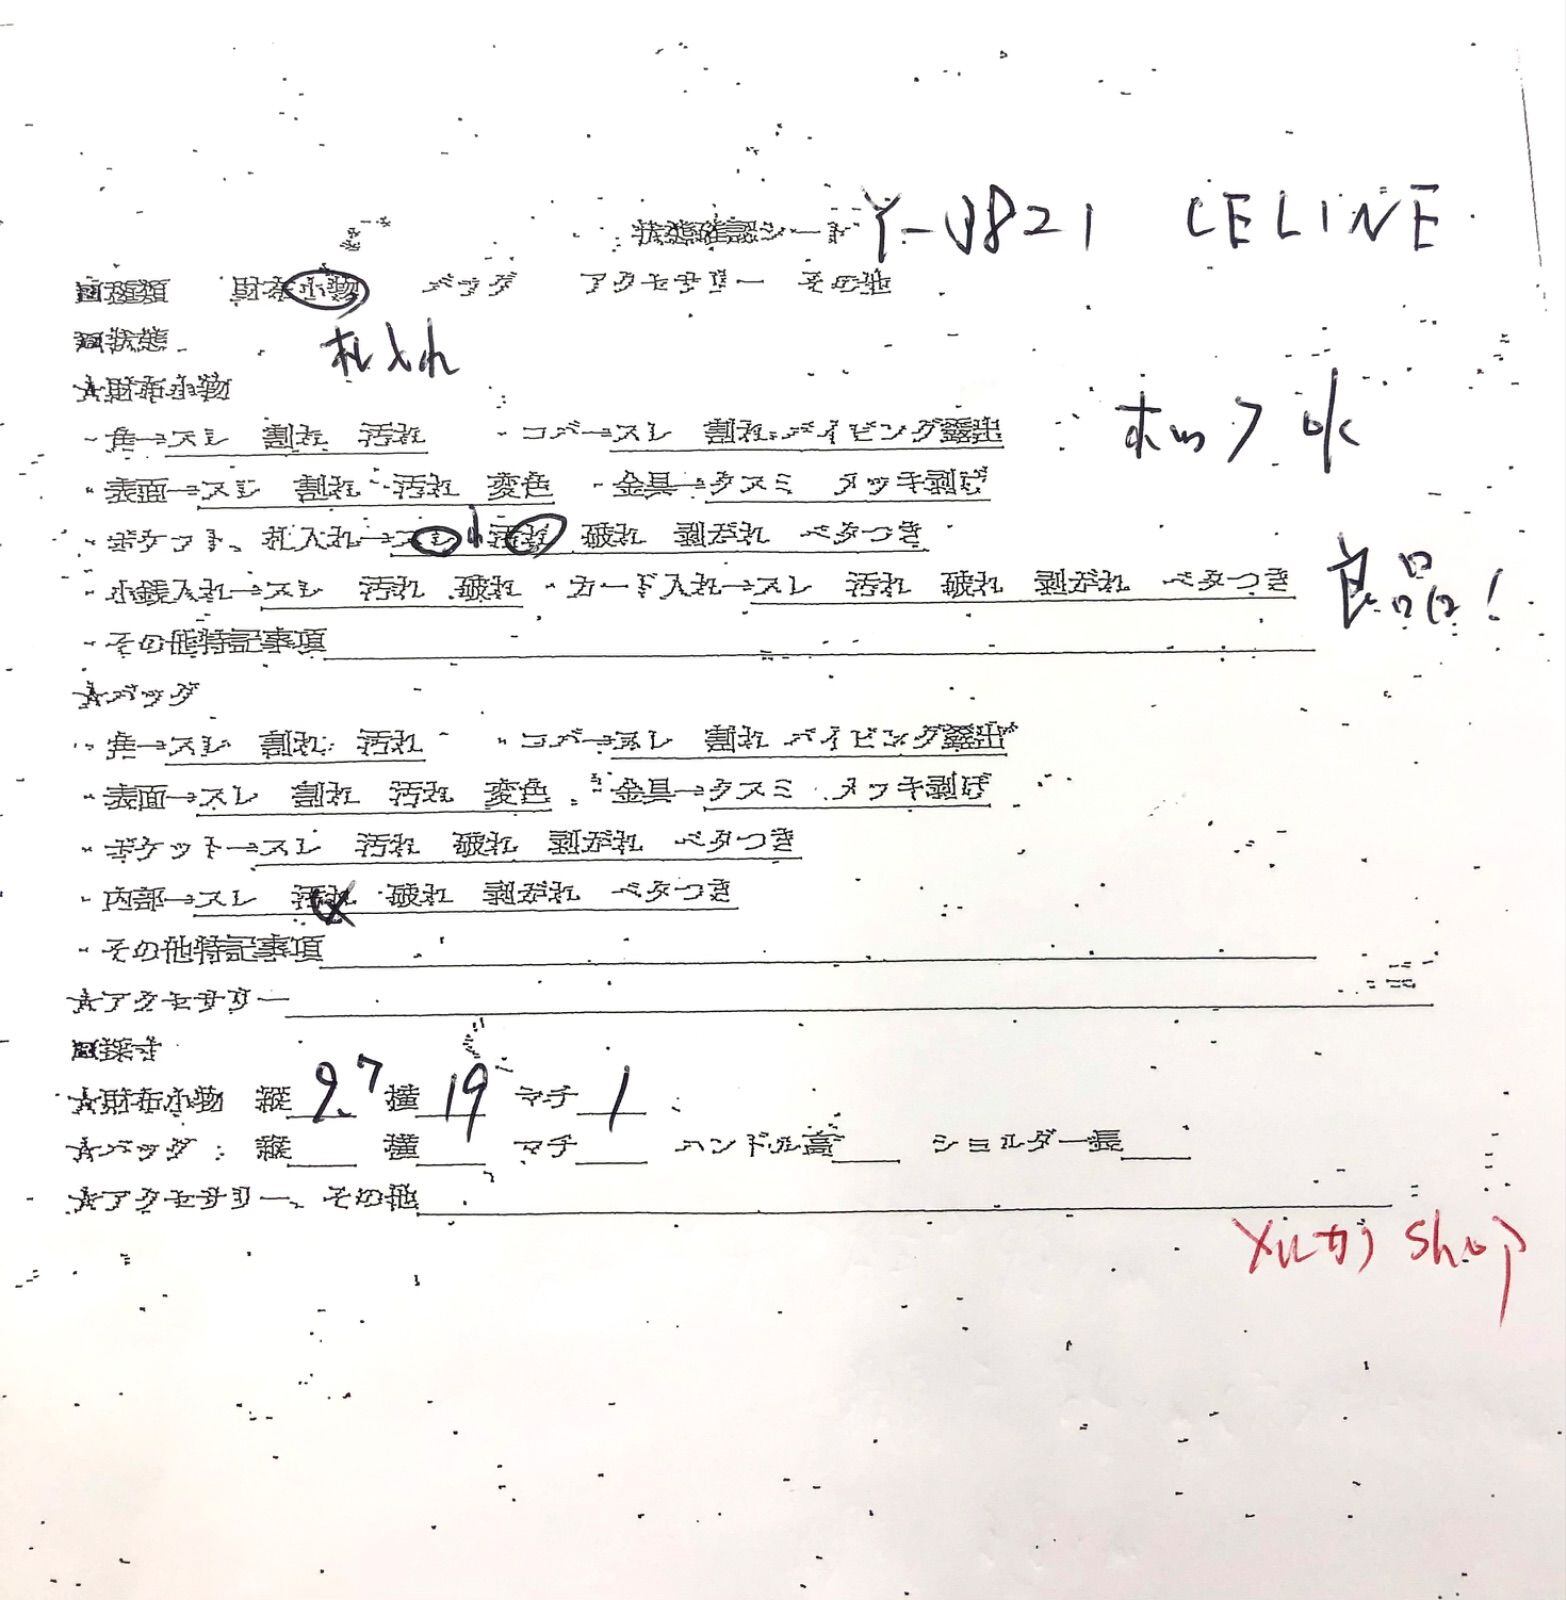 状態確認シート Y-3821 CELINE
■種類 財布小物 バッグ アクセサリー その他
■状態
札入れ
★財布小物
・角→スレ 割れ 汚れ ・コバ→スレ 割れ パイピング露出
ホック ok
・表面→スレ 割れ 汚れ 変色 ・金具→クスミ メッキ剥げ
・ポケット、札入れ→スレ 小 汚れ 破れ 剥がれ ベタつき
・小銭入れ→スレ 汚れ 破れ ・カード入れ→スレ 汚れ 破れ 剥がれ ベタつき
良品!
・その他特記事項
★バッグ
・角→スレ 割れ 汚れ ・コバ→スレ 割れ パイピング露出
・表面→スレ 割れ 汚れ 変色 ・金具→クスミ メッキ剥げ
・ポケット→スレ 汚れ 破れ 剥がれ ベタつき
・内部→スレ 汚れ 破れ 剥がれ ベタつき
・その他特記事項
★アクセサリー
■採寸
★財布小物 縦 9.7 横 19 マチ 1
★バッグ : 縦 横 マチ ハンドル高 ショルダー長
★アクセサリー、その他
メルカリ Shop